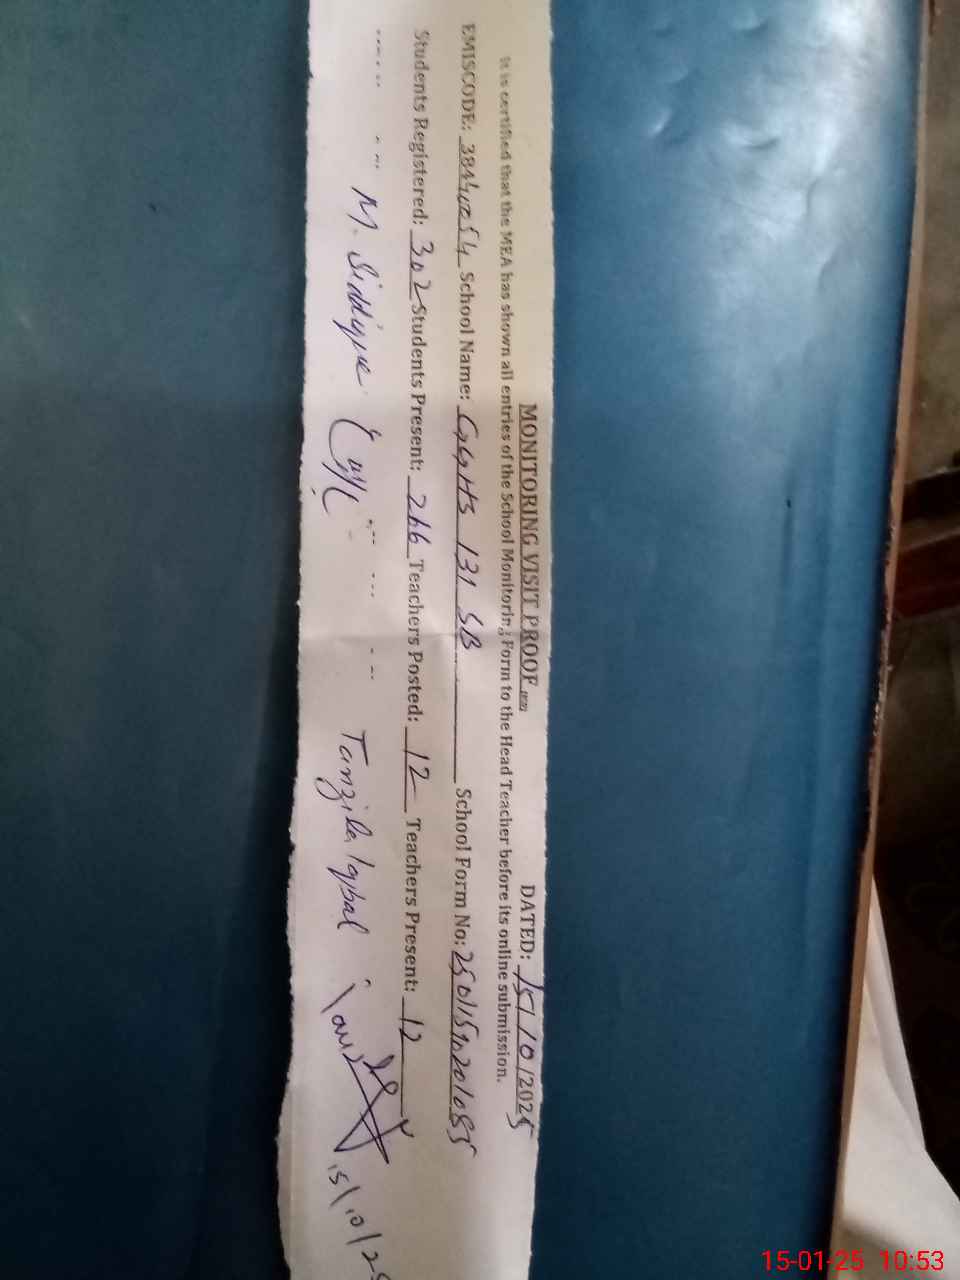 MONITORING VISIT PROOF DATED: 15/10/2025
It is certified that the MEA has shown all entries of the School Monitoring Form to the Head Teacher before its online submission.
EMISCODE: School Name: GGHS 131 SB School Form No:
Students Registered: 302 Students Present: 266 Teachers Posted: 12 Teachers Present: 12
M. Siddique Tanzila Iqbal
15/10/25
15-01-25 10:53